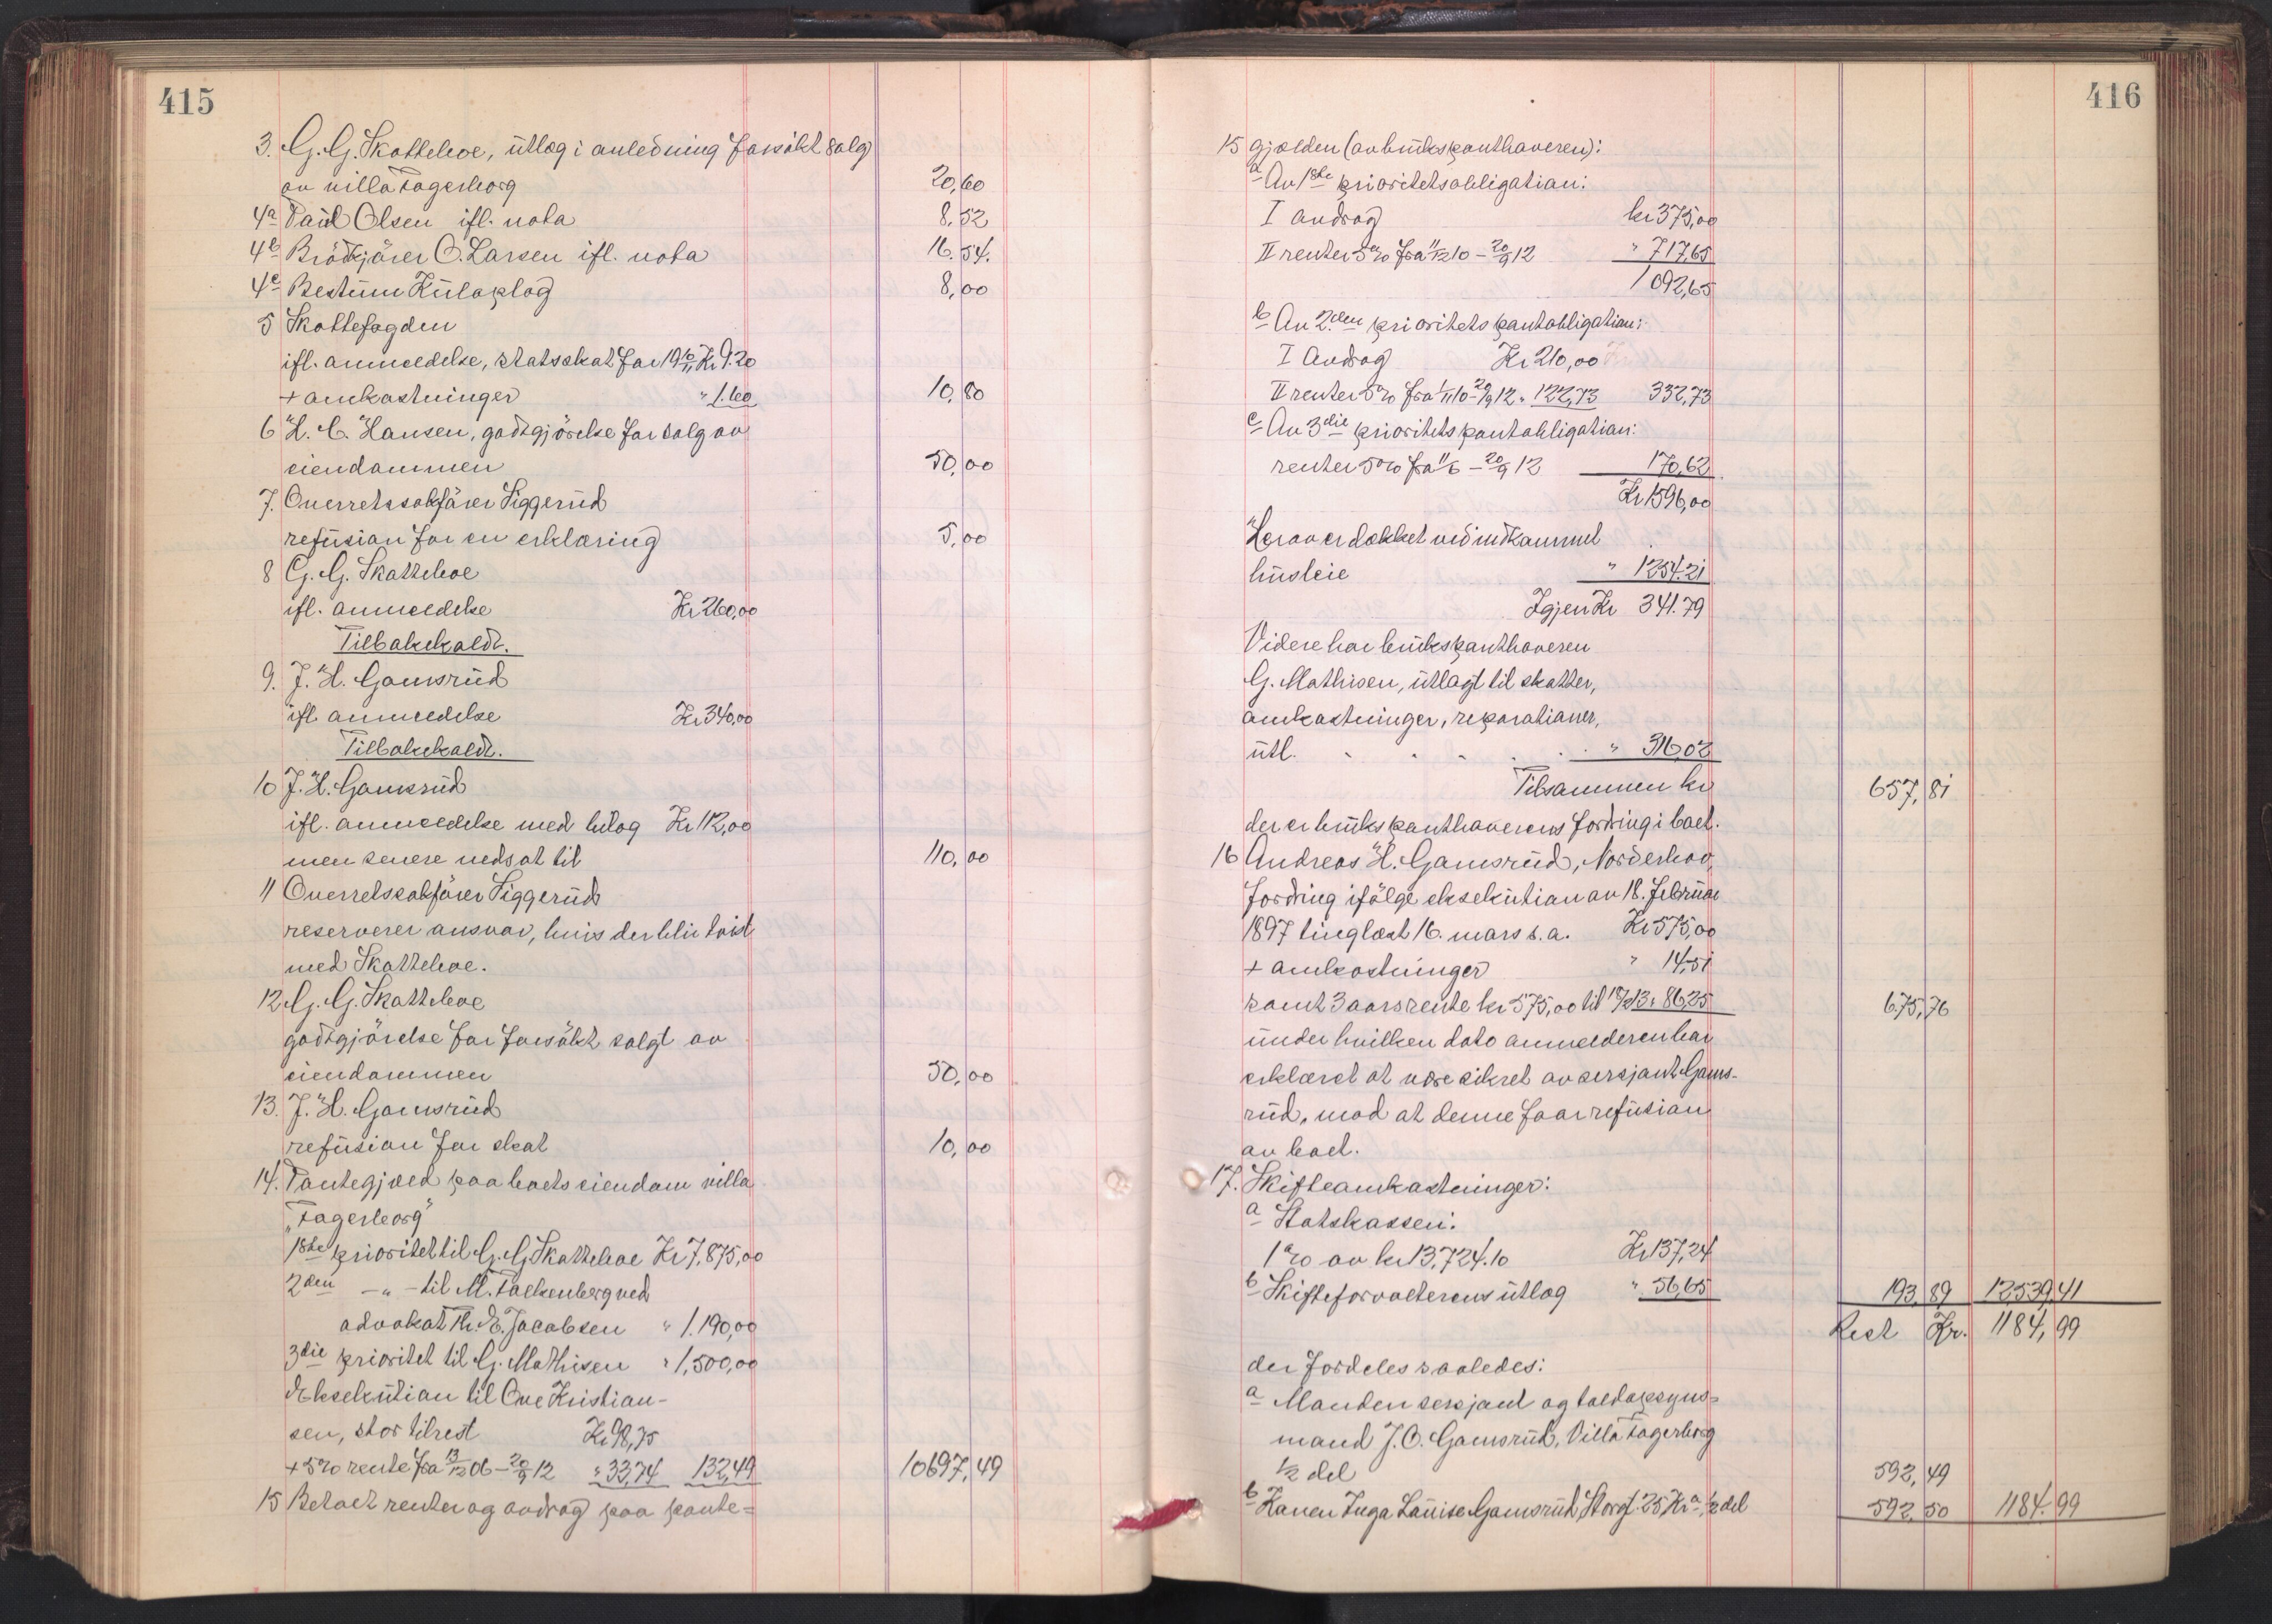 415
3. G. G. Skatteboe, utlæg i anledning forsökt salg
av villa Fagerborg 20,60
4a Paul Olsen ifl. nota 8,52
4b Brödkjörer O. Larsen ifl. nota 16.54.
4c Bestum Kuloplag 8,00
5 Skattefogden
ifl. anmeldelse, statsskat for 1910/11 Kr 9.20
+ omkostninger " 1.60 10,80
6 H. C. Hansen, godtgjörelse for salg av
eiendommen 50,00
7. Overretssakförer Siggerud
refusion for en erklæring 5,00
8 G. G. Skatteboe
ifl. anmeldelse Kr 260,00
Tilbakekaldt.
9. J. H. Gamsrud
ifl. anmeldelse Kr 340,00
Tilbakekaldt.
10 J. H. Gamsrud
ifl. anmeldelse med bilag Kr 112,00
men senere nedsat til 110,00
11 Overretssakförer Siggerud
reserverer ansvar, hvis der blir tvist
med Skatteboe.
12 G. G. Skatteboe
godtgjörelse for forsökt salgt av
eiendommen 50,00
13. J. H. Gamsrud
refusion for skat 10,00
14. Pantegjæld paa boets eiendom villa
"Fagerborg"
1ste prioritet til G. G. Skatteboe Kr 7.875,00
2den -"- til M. Falkenberg ved
advokat Th. E. Jacobsen " 1.190,00
3die prioritet til G. Mathisen " 1,500,00
Eksekution til Ove Kristian-
sen, stor tilrest Kr 98,75
+ 5% rente fra 13/12 06 - 20/9 12 " 33,74 132,49 10697,49
15 Betalt renter og avdrag paa pante=
416
15 gjælden (av brukspanthaveren):
a Av 1ste prioritetsobligation:
I avdrag kr 375,00
II renter 5% fra 11/12 10 - 20/9 12 " 717,65
1092,65
b Av 2den prioritets pantobligation:
I Avdrag Kr 210,00
II renter 5% fra 1/11 10 - 20/9 12 " 122,73 332,73
c Av 3die prioritets pantobligation:
renter 5% fra 11/6 - 20/9 12 170,62
Kr 1596,00
Herav er dækket ved indkommet
husleie " 1254.21
Igjen Kr 341.79
Videre har brukspanthaveren
G. Mathisen, utlagt til skatter,
omkostninger, reparationer,
utl. . . . . . " 316,02
Tilsammen kr 657,81
der er brukspanthaverens fordring i boet.
16 Andreas H. Gamsrud, Norderhov,
fordring ifölge eksekution av 18. februar
1897 tinglæst 16. mars s. a. Kr 575,00
+ omkostninger " 14,51
samt 3 aars rente kr 575,00 til 18/2 13 " 86,25 675,76
under hvilken dato anmelderen har
erklæret at være sikret av sersjant Gams-
rud, mod at denne faar refusion
av boet.
17. Skifteomkostninger:
a Statskassen:
1% av kr 13,724.10 Kr 137,24
b Skifteforvalterens utlæg " 56,65 193,89 12539,41
Rest Kr. 1184,99
der fordeles saaledes:
a Manden sersjant og toldopsyns=
mand J. O. Gamsrud, Villa Fagerborg
1/2 del 592,49
b Konen Inga Louise Gamsrud, Storgt. 25, Kra, 1/2 del 592,50 1184.99